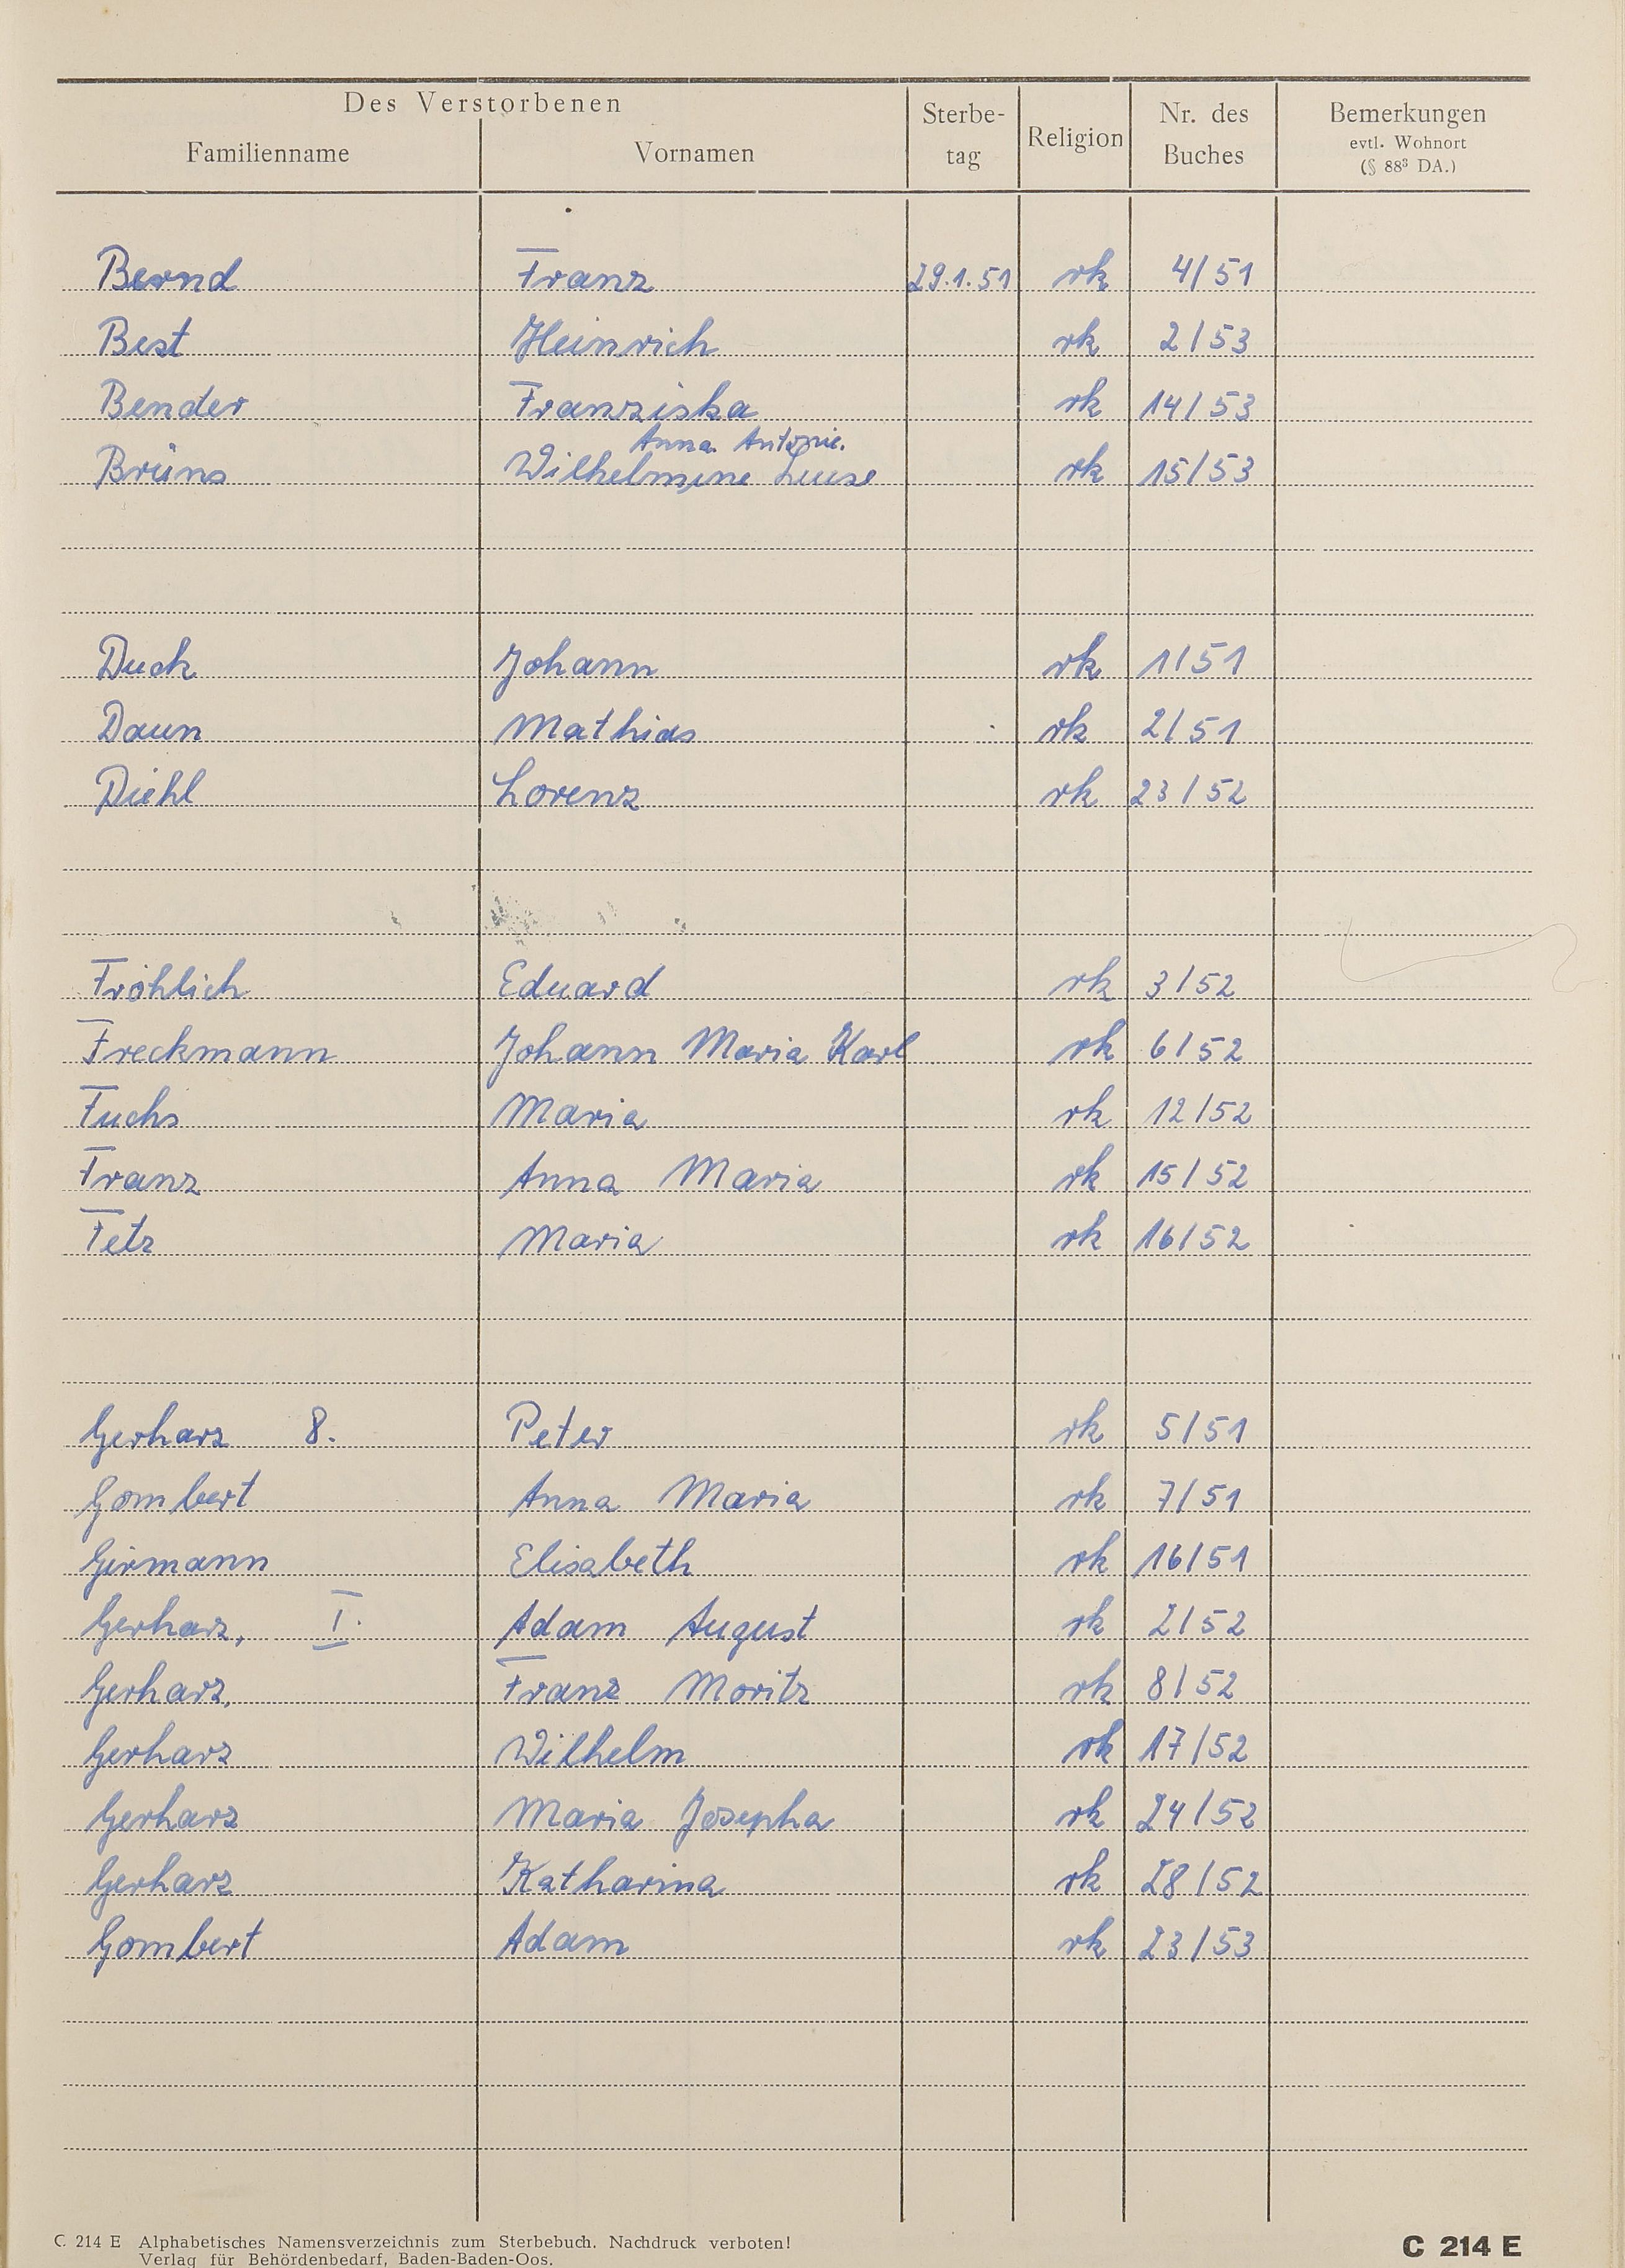 Des Verstorbenen
Familienname Vornamen Sterbe- tag Religion Nr. des Buches Bemerkungen
evtl. Wohnort
(§ 88³ DA.)
Bernd Franz 29.1.51 rk 4/51
Best Heinrich rk 2/53
Bender Franziska rk 14/53
Anna Antonie.
Brüns Wilhelmine Luise rk 15/53
Duck Johann rk 1/51
Daun Mathias rk 2/51
Diehl Lorenz rk 23/52
Fröhlich Eduard rk 3/52
Freckmann Johann Maria Karl rk 6/52
Fuchs Maria rk 12/52
Franz Anna Maria rk 15/52
Fetz Maria rk 16/52
Gerharz 8. Peter rk 5/51
Gombert Anna Maria rk 7/51
Girmann Elisabeth rk 16/51
Gerharz, I. Adam August rk 2/52
Gerharz, Franz Moritz rk 8/52
Gerharz Wilhelm rk 17/52
Gerharz Maria Josepha rk 24/52
Gerharz Katharina rk 28/52
Gombert Adam rk 23/53
C. 214 E Alphabetisches Namensverzeichnis zum Sterbebuch. Nachdruck verboten! C 214 E
Verlag für Behördenbedarf, Baden-Baden-Oos.